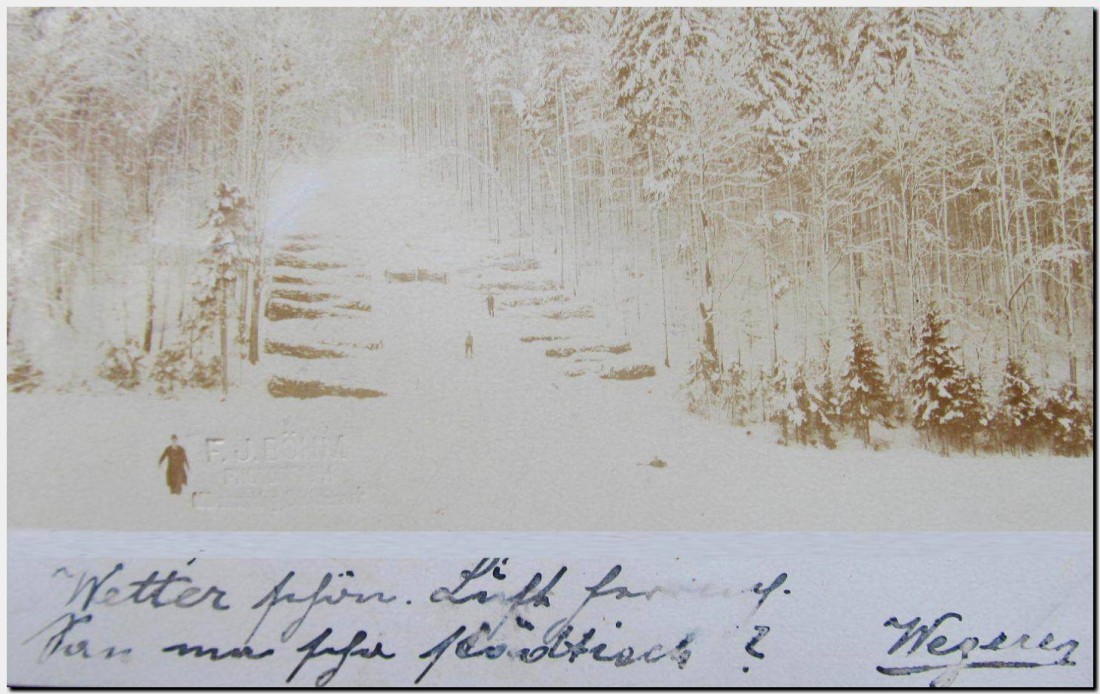 F. J. BÖHM
Wetter schön. Luft
San ma scho städtisch ?
Wegerer